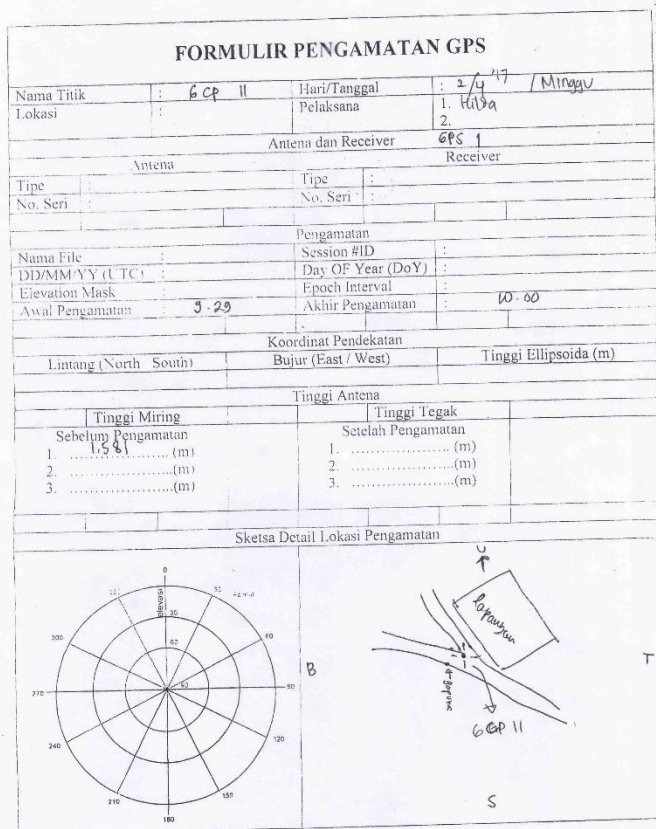 FORMULIR PENGAMATAN GPS
Nama Titik : GCP 11 Hari/Tanggal : 2/4 '17 / Minggu
Lokasi : Pelaksana 1. Hilda
2.
Antena dan Receiver GPS 1
Antena Receiver
Tipe : Tipe :
No. Seri : No. Seri :
Pengamatan
Nama File : Session #ID :
DD/MM/YY (UTC) : Day OF Year (DoY) :
Elevation Mask Epoch Interval :
Awal Pengamatan : 9.29 Akhir Pengamatan : 10.00
Koordinat Pendekatan
Lintang (North South) Bujur (East / West) Tinggi Ellipsoida (m)
Tinggi Antena
Tinggi Miring Tinggi Tegak
Sebelum Pengamatan Setelah Pengamatan
1. 1,581 (m) 1. ................... (m)
2. ................... (m) 2. ................... (m)
3. ................... (m) 3. ................... (m)
Sketsa Detail Lokasi Pengamatan
0
30
elevasi
30
60
60
90
90
120
150
180
210
240
270
300
U
lapangan
B
T
GCP 11
S